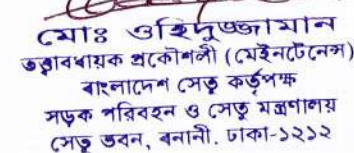 মোঃ ওহিদুজ্জামান
তত্ত্বাবধায়ক প্রকৌশলী (মেইনটেনেন্স)
বাংলাদেশ সেতু কর্তৃপক্ষ
সড়ক পরিবহন ও সেতু মন্ত্রণালয়
সেতু ভবন, বনানী. ঢাকা-১২১২